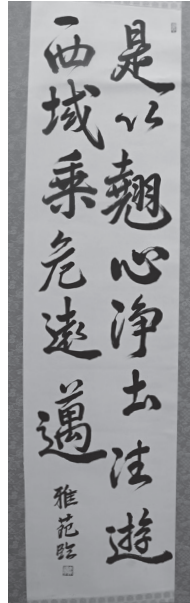 是以翹心淨土法遊
西域乗危遠邁
雅苑臨